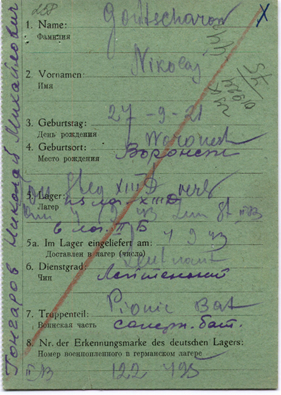 258
1. Name: Gontscharow
Фамилия
Nikolaj
2. Vornamen:
Имя
3. Geburtstag: 27-9-21
День рождения
4. Geburtsort: Woronesh
Место рождения Воронеж
5. Lager: Stlg XIII D
Лагер XIII D
5a. Im Lager eingeliefert am:
Доставлен в лагер (число)
6. Dienstgrad: Leutnant
Чин Лейтенант
7. Truppenteil: Pionir Bat
Воинская часть саперн. бат.
8. Nr. der Erkennungsmarke des deutschen Lagers:
Номер военнопленного в германском лагере
122 495
Гончаров Николай Михайлович